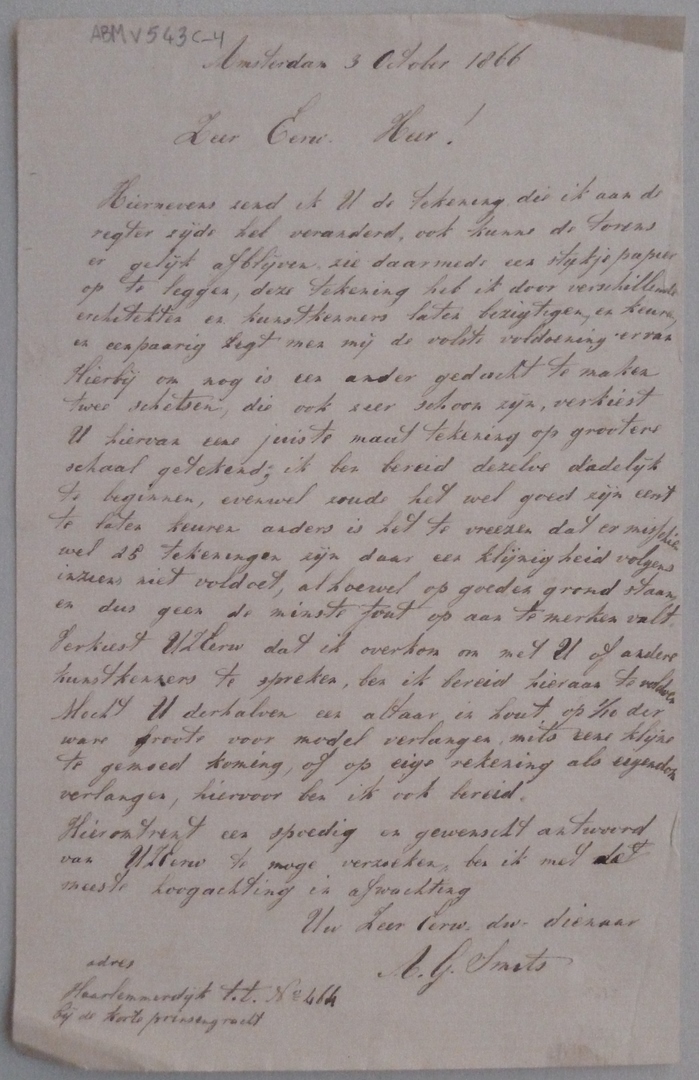 ABM V543C-4
Amsterdam 3 October 1866
Zeer Eerw. Heer!
Hiernevens zend ik U de tekening die ik aan de
regter zijde heb veranderd, ook kunne de torens
er gelijk afblijven zie daarmede een stukje papier
op te leggen, deze tekening heb ik door verschillende
eschitekten en kunstkenners laten bezigtigen, en keure,
en eenpaarig zegt men mij de volste voldoening ervan
Hierbij om nog is een ander gedacht te maken
twee schetsen, die ook zeer schoon zijn, verkiest
U hiervan eene juiste maat tekening op grootere
schaal getekend; ik ben bereid dezelve dadelijk
te beginnen, evenwel zoude het wel goed zijn eerst
te laten keuren anders is het te vreezen dat er misschien
wel 25 tekeningen zijn daar een klijnigheid volgens
inziens niet voldoet, alhoewel op goeden grond staan,
en dus geen de minste fout op aan te merken valt.
Verkiest UZEerw dat ik overkom om met U of andere
kunstkenners te spreken, ben ik bereid hieraan te voldoen
Mocht U derhalven een altaar in hout, op 1/10 der
ware groote voor model verlangen, mits eene klijne
te gemoed koming, of op eige rekening als eigendom
verlangen, hiervoor ben ik ook bereid.
Hieromtrent een spoedig en gewenscht antwoord
van UZEerw te moge verzoeken, ben ik met
meeste hoogachting in afwachting
Uw Zeer Eerw. dw. dienaar
A. G. Smets
adres
Haarlemmerdijk t.t. No 464
bij de korte prinsengracht